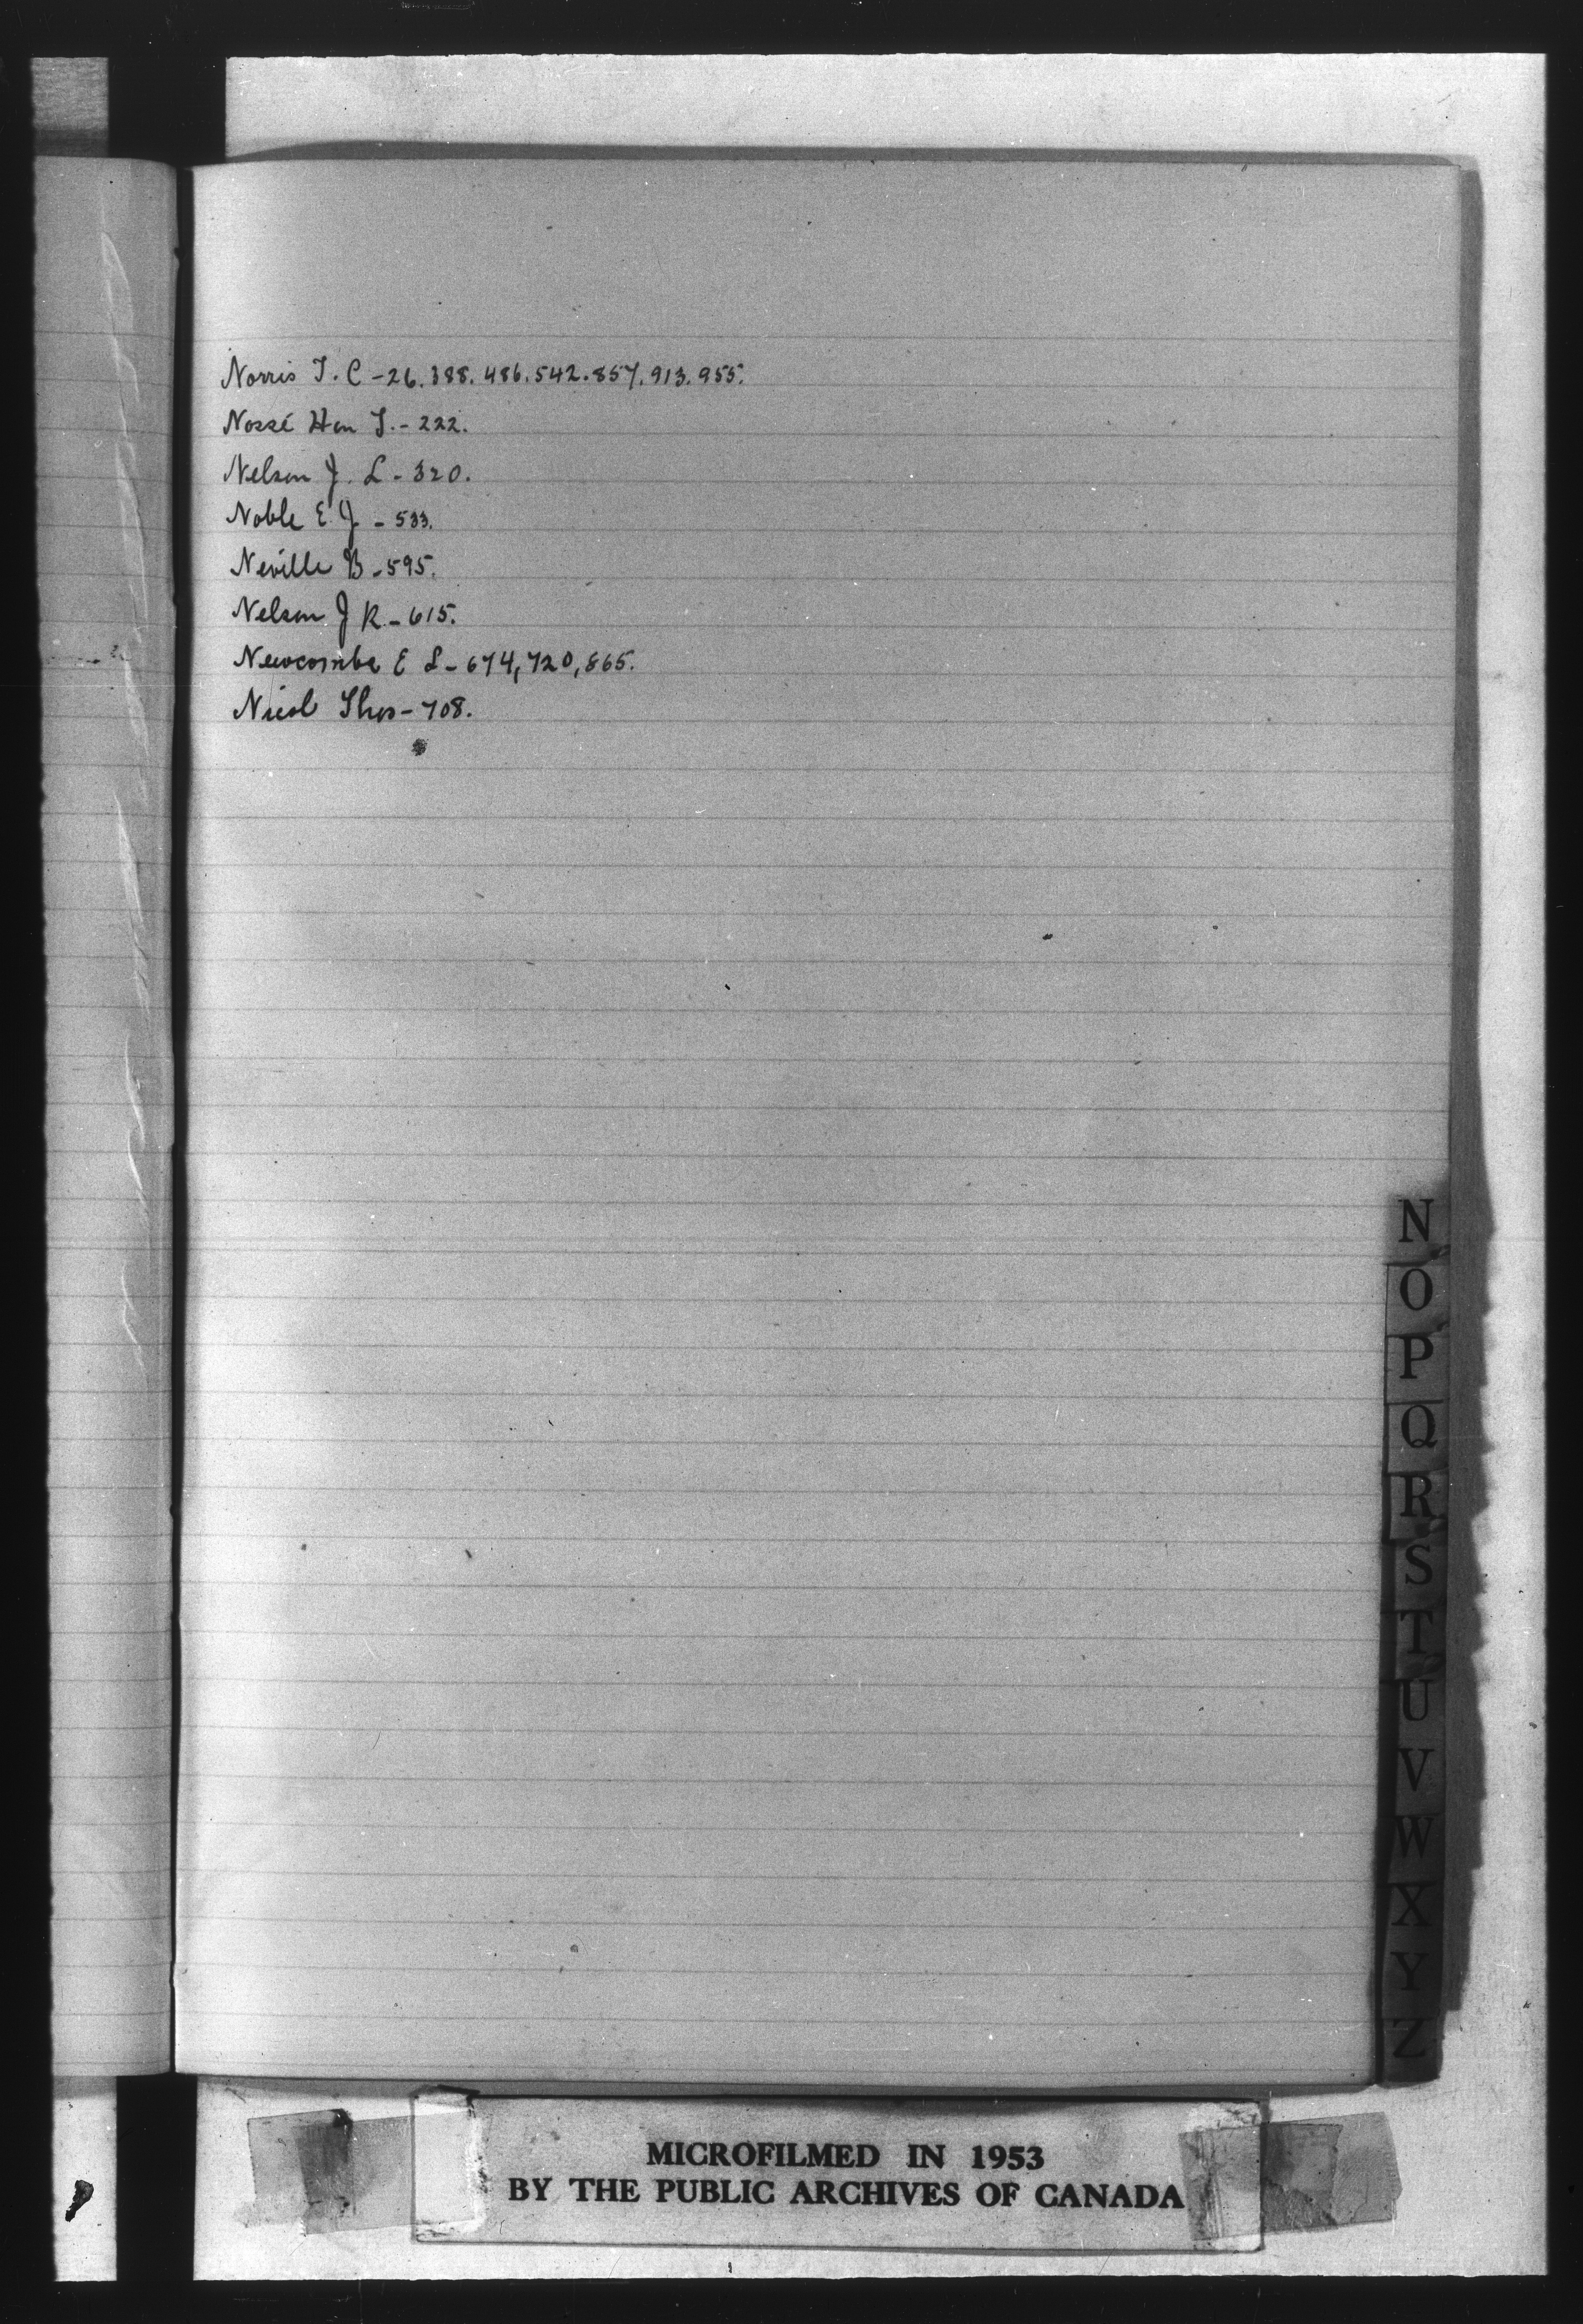 Norris T. C - 26. 388. 486. 542. 857. 913. 955.
Nossé Hon T. - 222.
Nelson J. L - 320.
Noble E. J - 533.
Neville B - 595.
Nelson J R. - 615.
Newcombe E L - 674, 720, 865.
Nicol Thos - 708.
N
O
P
Q
R
S
T
U
V
W
X
Y
Z
MICROFILMED IN 1953
BY THE PUBLIC ARCHIVES OF CANADA